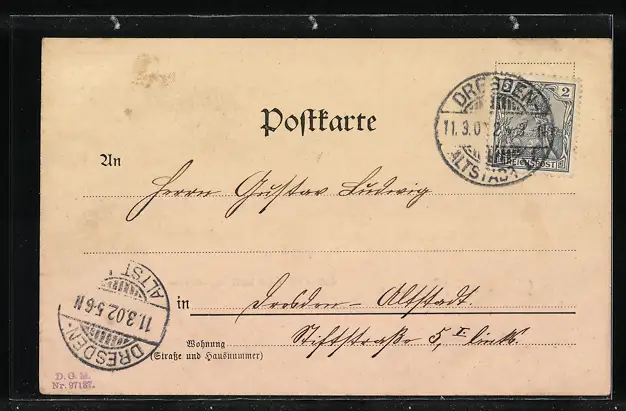 Postkarte
2
REICHSPOST
DRESDEN-
11.3.02
ALTSTADT
An
Herrn Gustav Ludwig
in Dresden-Altstadt
Wohnung
(Straße und Hausnummer)
Stiftstraße 5, I. links.
ALTST.
11.3.02.5-6N
DRESDEN-
D. G. M.
Nr. 97187.